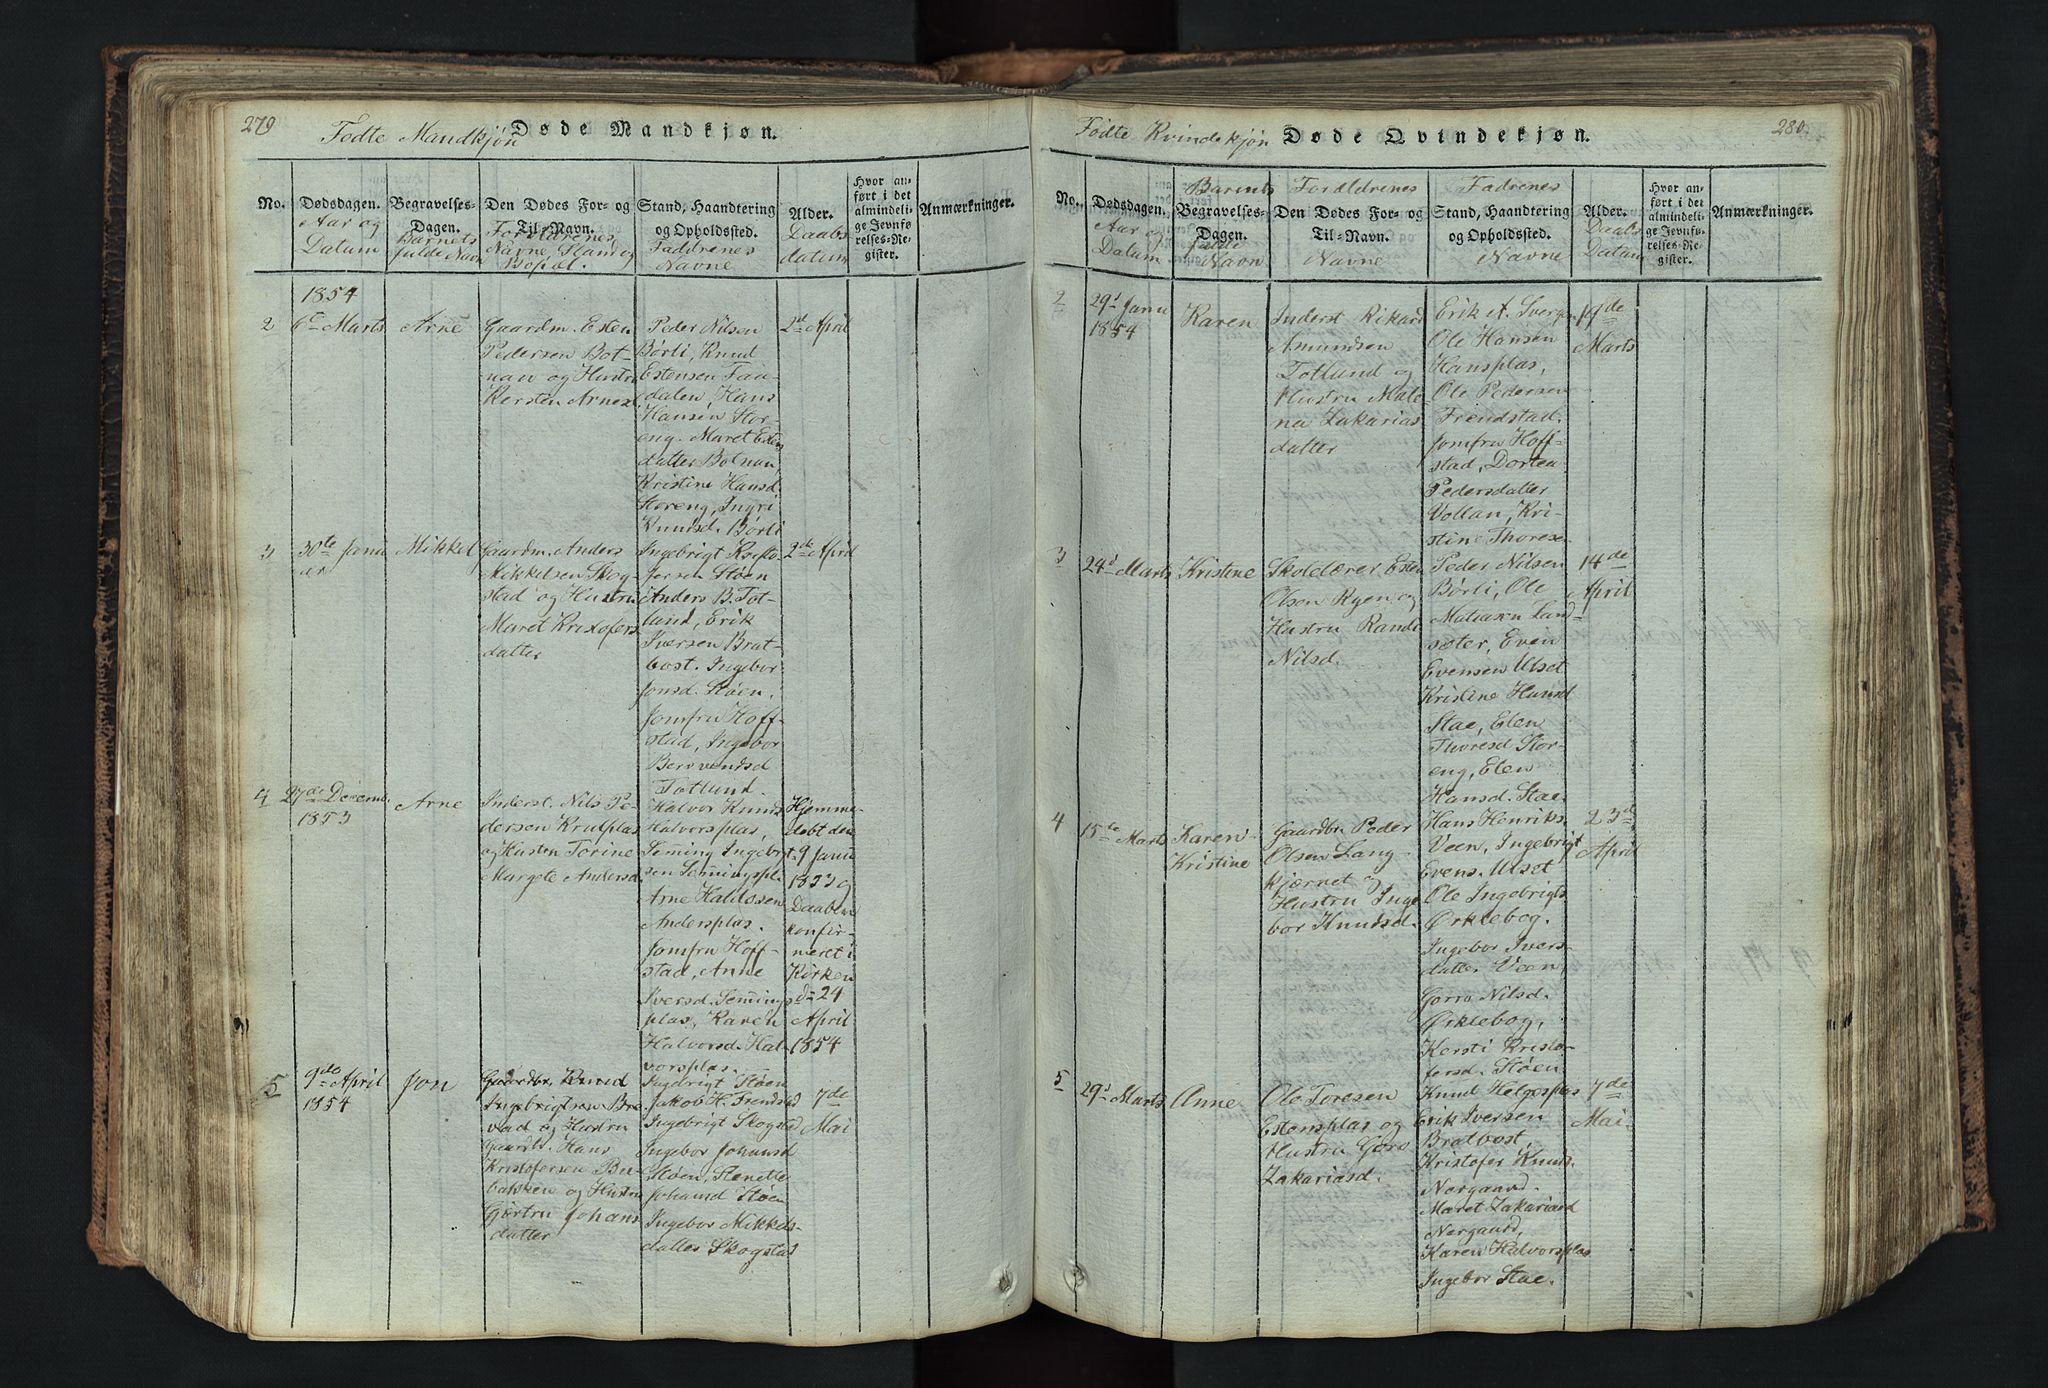 279
Fødte Mandkjøn
Døde Mandkjøn.
No.
Dødsdagen.
Aar og
Datum
Begravelses-
Dagen.
Barnets
fulde Navn
Den Dødes For- og
Til-Navn.
Forældrenes
Navne Stand og
Bopæl.
Stand, Haandtering
og Opholdssted.
Faddrenes
Navne
Alder.
Daabs
datum
Hvor an-
ført i det
almindeli-
ge Jevnfø-
relses-Re-
gister.
Anmærkninger.
1854
2
6te Marts
Arne
Gaardm. Esten
Pedersen Bot-
nan og Hustru
Kersten Arnesd
Peder Nilsen
Børli, Knud
Estensen Fau-
dalen, Hans
Hansen Stor-
eng. Maret Estens
datter Botnan,
Kristine Hansd.
Storeng, Ingri
Knudsd. Børli
2d April
3
30te Janu
ar
Mikkel
Gaardm. Anders
Mikkelsen Skog-
stad og Hustru
Maret Kristofers
datter
Ingebrigt Kristo-
fersen Støen
Anders B. Tot-
lund, Erik
Iversen Brat-
bost. Ingebor
Jonsd. Støen.
Jomfru Hoff-
stad, Ingebor
Berovendsd
Totlund.
2de April
4
27de Decemb.
1853
Arne
Inderst. Nils Pe-
dersen Krulplas
og Husten Torine
Margete Andersd.
Halvor Knuds
Halvorsplas,
Seming Ingebrgt-
sen Semingspl.
Arne Haldssen
Andersplas.
Jomfru Hoff-
stad, Anne
Iversd. Semings
plas, Karen
Halvorsd. Hal-
vorsplas.
Hjemme-
døbt den
9 Janu
1853 og
Daaben
konfir-
meret i
Kirken
d= 24
April
1854
5
9de April
1854
Jon
Gaardbr. Knud
Ingebrigtsen Bre-
vad og Hustru
Gaardb. Hans
Kristofersen Bu-
bakken og Hustru
Gjertru Johans
datter
Ingebrigt Støen
Jakob H. Frendstad
Ingebrigt Skogstad
Ingebor Johansd
Støen, Henette
Johansd Støen
Ingebor Mikkels-
datter Skogstad
7de
Mai
280.
Fødte Kvindekjøn
Døde Qvindekjøn.
No.
Dødsdagen.
Aar og
Datum
Barnets
Begravelses-
Dagen.
fulde
Navn
Forældrenes
Den Dødes For- og
Til-Navn.
Navne
Fadrenes
Stand, Haandtering
og Opholdssted.
Navne
Alder.
Daabs
Datum
Hvor an-
ført i det
almindeli-
ge Jevnfø-
relses-Re-
gister.
Anmærkninger.
2
29d Janu
1854
Karen
Inderst Rikard
Amundsen
Totlund og
Hustru Male-
na Zakarias
datter
Erik A. Svergen
Ole Hansen
Hansplas,
Ole Pedersen
Frendstad.
Jomfru Hoff-
stad, Dortea
Pedersdatter
Vollan, Kri-
stine Thorese
19de
Marts
3
24d Marts
Kristine
Skolelærer Esten
Olsen Ryen og
Hustru Randi
Nilsd.
Peder Nilsen
Børli, Ole
Matiasen Land-
sæter, Even
Evensen Ulset
Kristine Hansd
Stae, Elen
Thoresd Stor-
eng, Elen
Hansd. Stae.
14de
April
4
15de Marts
Karen
Kristine
Gaardbr. Peder
Olsen Lang-
kjærnet og
Hustru Inge
bor Knudsd.
Hans Henriks.
Veen, Ingebrigt
Evens. Ulset
Ole Ingebrigts
Ørklebog.
Ingebor Ivers-
datter Veen,
Gorro Nilsd.
Ørklebog,
Kersti Kristo-
fersd. Støen
23d
April
5
29d Marts
Anne
Ole Toresen
Estensplas og
Hustru Goro
Zakariasd.
Knud Helgesplas
Erik Iversen
Bratbost,
Kristofer Knuds.
Norgaard.
Maret Zakariasd
Norgaard,
Karen Halvorsplas
Ingebor Stae.
7de
Mai.